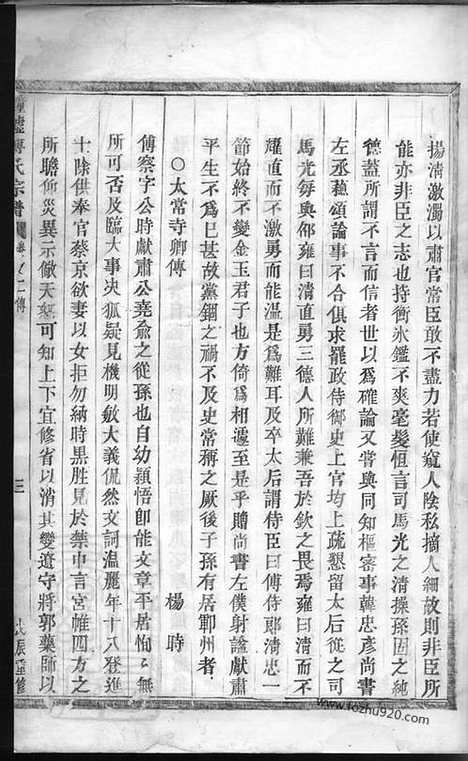 揚清激濁以肅官常臣敢不盡力若使窺人陰私摘人細故則非臣所
能亦非臣之志也持衡氷鑑不爽毫髮恒言司馬光之清操孫固之純
德蓋所謂不言而信者世以爲確論又嘗與同知樞密事韓忠彥尚書
左丞蘓頌論事不合俱求罷政侍御史上官均上疏懇留太后從之司
馬光每與邵雍曰清直勇三德人所難兼吾於欽之畏焉雍曰清而不
耀直而不激勇而能溫是爲難耳及卒太后謂侍臣曰傅侍郎清忠一
節始終不變金玉君子也方倚爲相遽至是乎贈尚書左僕射諡獻肅
平生不爲巳甚故黨錮之禍不及史常稱之厥後子孫有居鄆州者
楊時
○太常寺卿傳
傅察字公時獻肅公堯俞之從孫也自幼穎悟卽能文章平居恂恂無
所可否及臨大事决狐疑見機明敏大義侃然文詞溫麗年十八登進
士除供奉官蔡京欲妻以女拒勿納時黑胜見於禁中言宮帷四方之
所瞻衝災異示儆天變可知上下宜修省以消其變遼守將郭藥師以
傅氏宗譜 卷之二傳 三